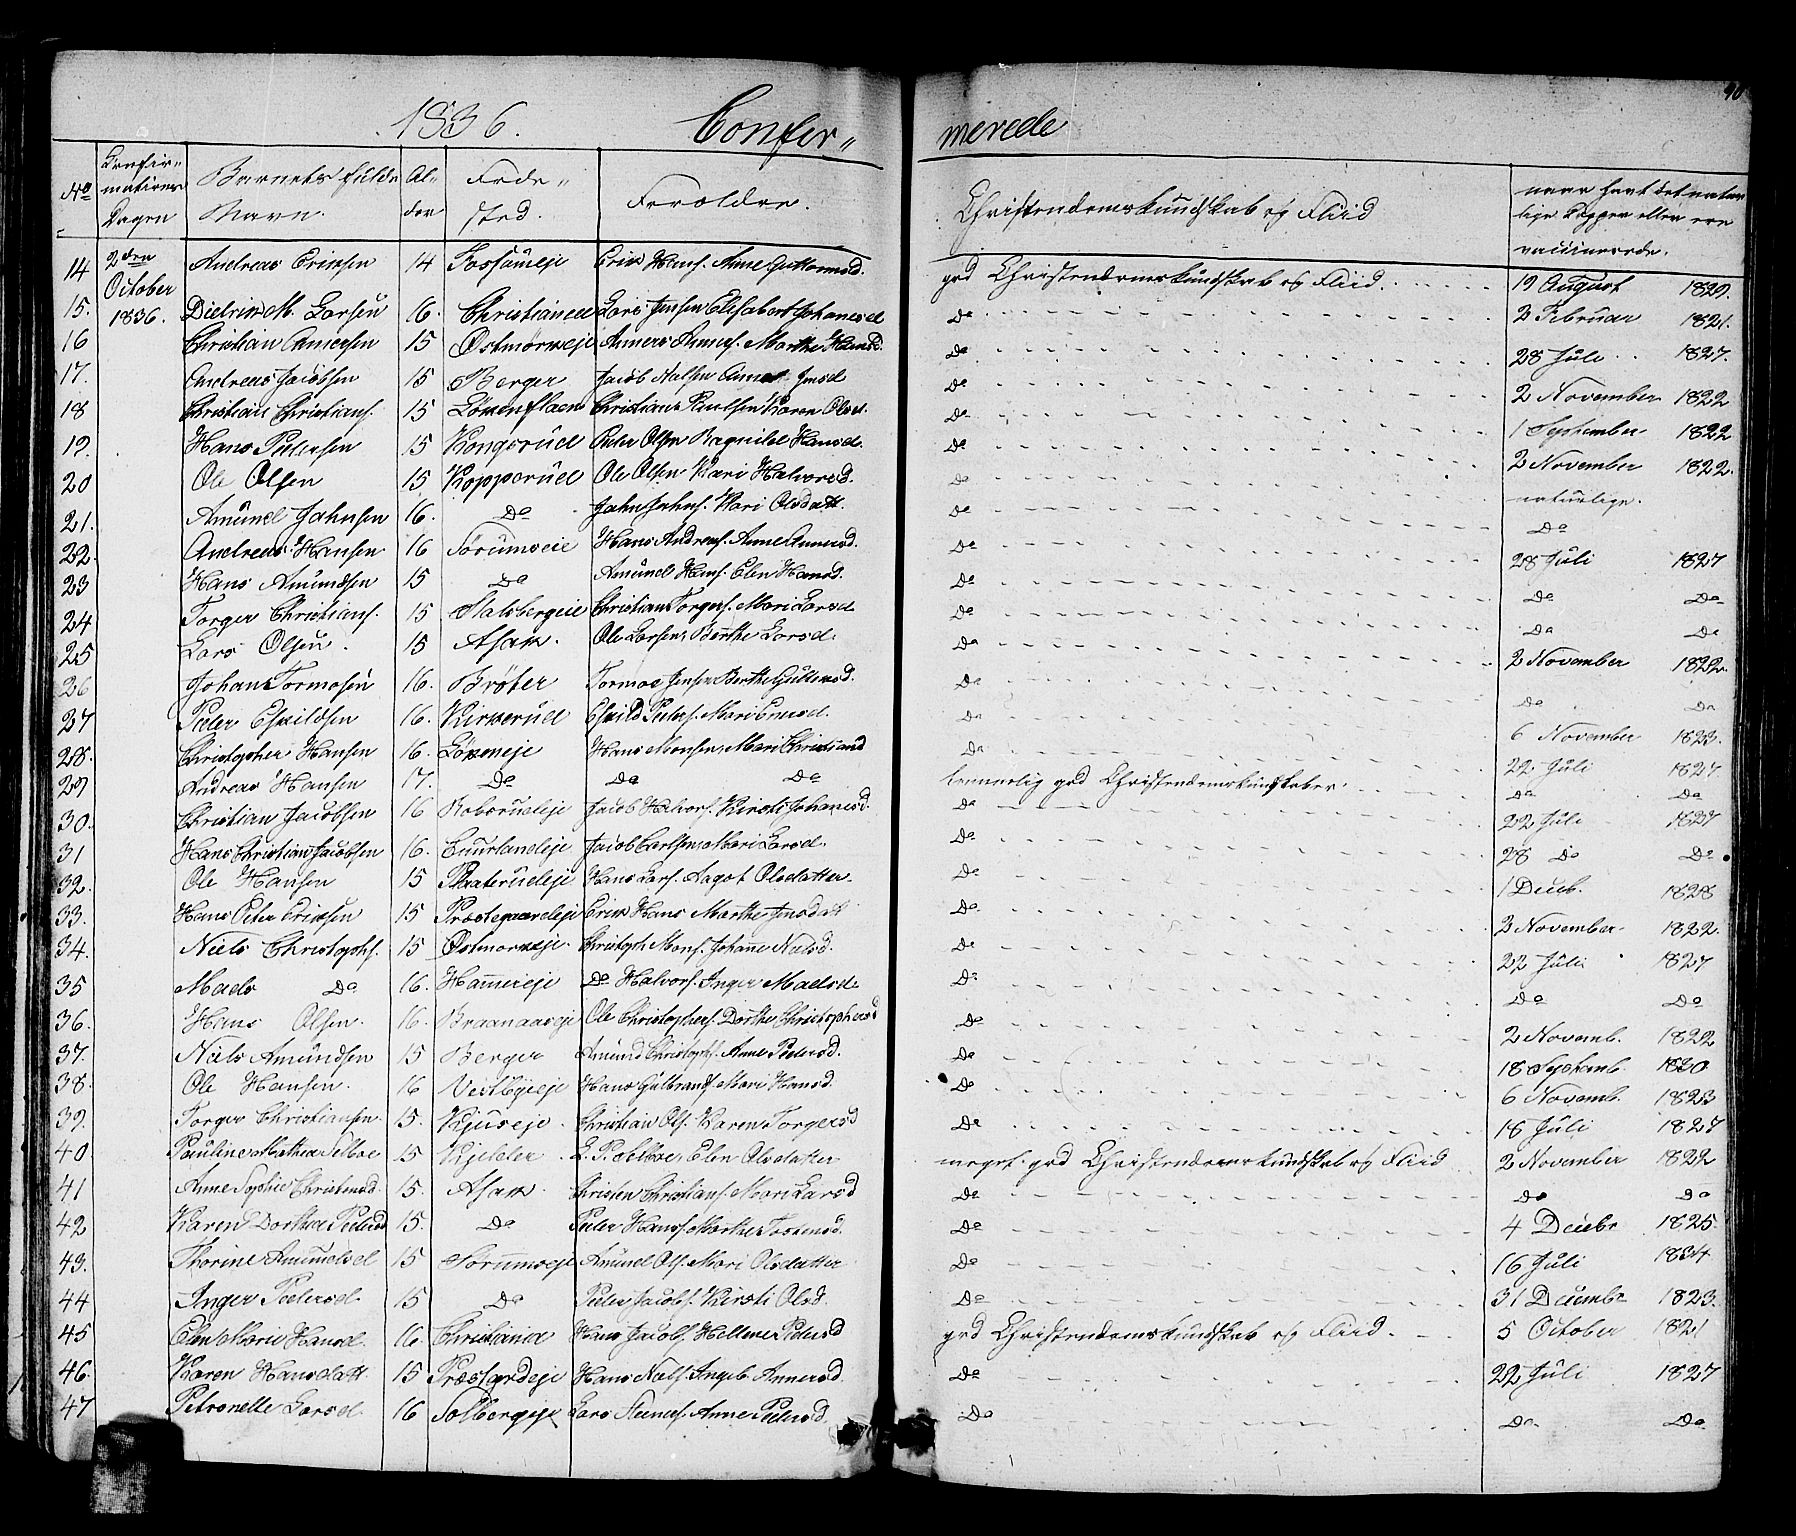 40
1836. Confir„ merede
No Confir„ mations Dagen Barnets fulde Navn. Al- der Føde„ sted. Foroldre. Christendomskundskab og Fliid naar havt det natur lige Copper eller ere vaccinerede.
14 2den October 1836. Andreas Eriksen 14 Fossumeje Erik Hans. Anne Guttormsd. god Christendomskundskab og Fliid 19 August 1829.
15. Didrik M. Larsen 16. Christiania Lars Jensen Elisabert Johansd Do 2 Februar 1821.
16 Christian Andersen 15 Østmorkeje Anders Anders. Marthe Hansd. Do 28 Juli 1827.
17. Andreas Jacobsen 15 Berger Jacob Nalsen Anne Jensd Do 2 November 1822
18 Christian Christians. 15 Løkenflaen Christian Paulsen Karen Olsd. Do 1 September 1822
19. Hans Petersen 15 Kongsrud Peter Olsen Ragnild Hansd Do 2 November 1822.
20 Ole Olsen 15 Kopperud Ole Olsen Kari Halvorsd. Do naturlige.
21. Amund Jahnsen 16. Do Jahn Jahns. Kari Olsdatt. Do Do
22. Andreas Hansen 16 Sørumseie Hans Andreas. Anne Andersd. Do 28 Juli 1827
23 Hans Amundsen 15 Do Amund Hans. Elen Hansd. Do Do Do
24 Torger Christians. 15 Stalsbergeie Christian Torgers. Mari Larsd Do Do Do
25 Lars Olsen 15 Asak. Ole Larsen Berthe Larsd. Do 2 November 1822.
26 Johan Tormosen 16. Brøter Tormoe Jensen Berthe Guttormsd. Do Do Do
27 Peder Eskildsen 16. Kirkerud Eskild Peders. Mari Ericsd. Do 6 November 1823.
28. Christopher Hansen 16. Løkeneje Hans Monsen Mari Christiansd Do 22 Juli 1827
29 Andreas Hansen 17. Do Do Do temmelig god Christendomskundskaber. Do Do
30. Christian Jacobsen 16 Roborudeje Jacob Halvors. Kirsti Johansd. Do 22 Juli 1827
31 Hans Christian Jacobsen 16. Cuurlandeje Jacob Carlsen Mari Larsd. Do 28 Do Do
32. Ole Hansen 15 Plaaterudeje Hans Lars. Aagot Olsdatter. Do 1 Decb. 1828
33. Hans Peter Eriksen 15 Præstegaardeje Erik Hans Marthe Jensdatt Do 2 November 1822.
34. Niels Christophs. 15 Østmorkeje. Christoph Mons. Johanne Nielsd. Do 22 Juli 1827
35 Mads Do 16. Hammereje Do Halvors. Inger Madsd. Do Do Do
36. Hans Olsen. 16. Braanaaseje Ole Christophers. Dorthe Christophersd Do 2 Novemb. 1822
37. Niels Amundsen 15 Berger Amund Christophs. Anne Pedersd. Do 18 Septemb. 1830
38. Ole Hansen. 16 Vestbyeje Hans Gulbrands. Mari Hansd. Do 6 Novemb. 1823
39. Torger Christiansen 15. Kjuseje. Christian Ols. Karen Torgersd Do 18 Juli 1827
40 Pauline Mathea Moe 15 Kjelder L. P. Moe, Elen Olsdatter meget god Christendomskundskab og Fliid 2 November 1822
41 Anne Sophie Christensd. 15. Asak. Christen Christians. Mari Larsd Do Do Do
42 Karen Dorthea Pedersd 15. Do Peder Hans. Marthe Tostensd. Do 4 Decebr 1825.
43. Thorine Amundsd 15 Sørumseje Amund Ols. Mari Olsdatter Do 16 Juli 1834
44 Inger Pedersd. 15 Do Peder Jacobs. Kirsti Olsd. Do 31 Decembr 1823.
45 Elen Marie Hansd. 16. Christiania Hans Jacobs. Hellene Pedersd god Christendomskundskab og Fliid. 5 October 1821
46. Karen Hansdatt. 15 Præstgrdeje Hans Niels. Ingeb. Andersd. Do 22 Juli 1827
47 Petronelle Larsd. 16 Solbergeje Lars Steners. Anne Pedersd. Do Do Do